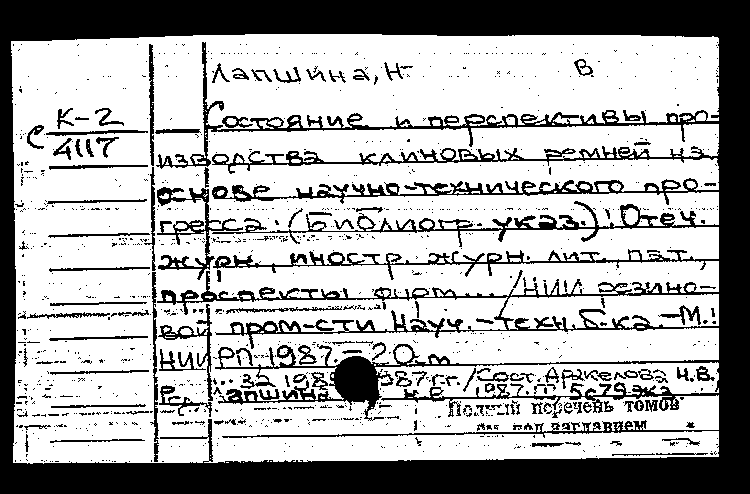 Лапшина, Н В
К-2
С 4117
Состояние и перспективы про-
изводства клиновых ремней на
основе научно-технического про-
гресса: (Библиогр. указ.)! Отеч.
журн., иностр. журн. лит., пат.,
проспекты фирм... / НИИ резино-
вой пром-сти Науч.-техн. б-ка.-М.!
НИИРП, 1987.-20 m
... за 198 987 гг. / Сост. Аракелова Н.В.
Лапшина 1987. 5с 79 экз
Полный перечень томов
под заглавием